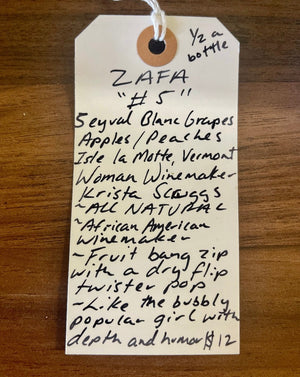 1/2 a
bottle
ZAFA
"#5"
Seyval Blanc Grapes
Apples/Peaches
Isle la Motte, Vermont
Woman Winemaker
Krista Scruggs
~ALL NATURAL
~African American
Winemaker
~Fruit bang zip
with a dry flip
twister pop
~Like the bubbly
popular girl with
depth and humor $12